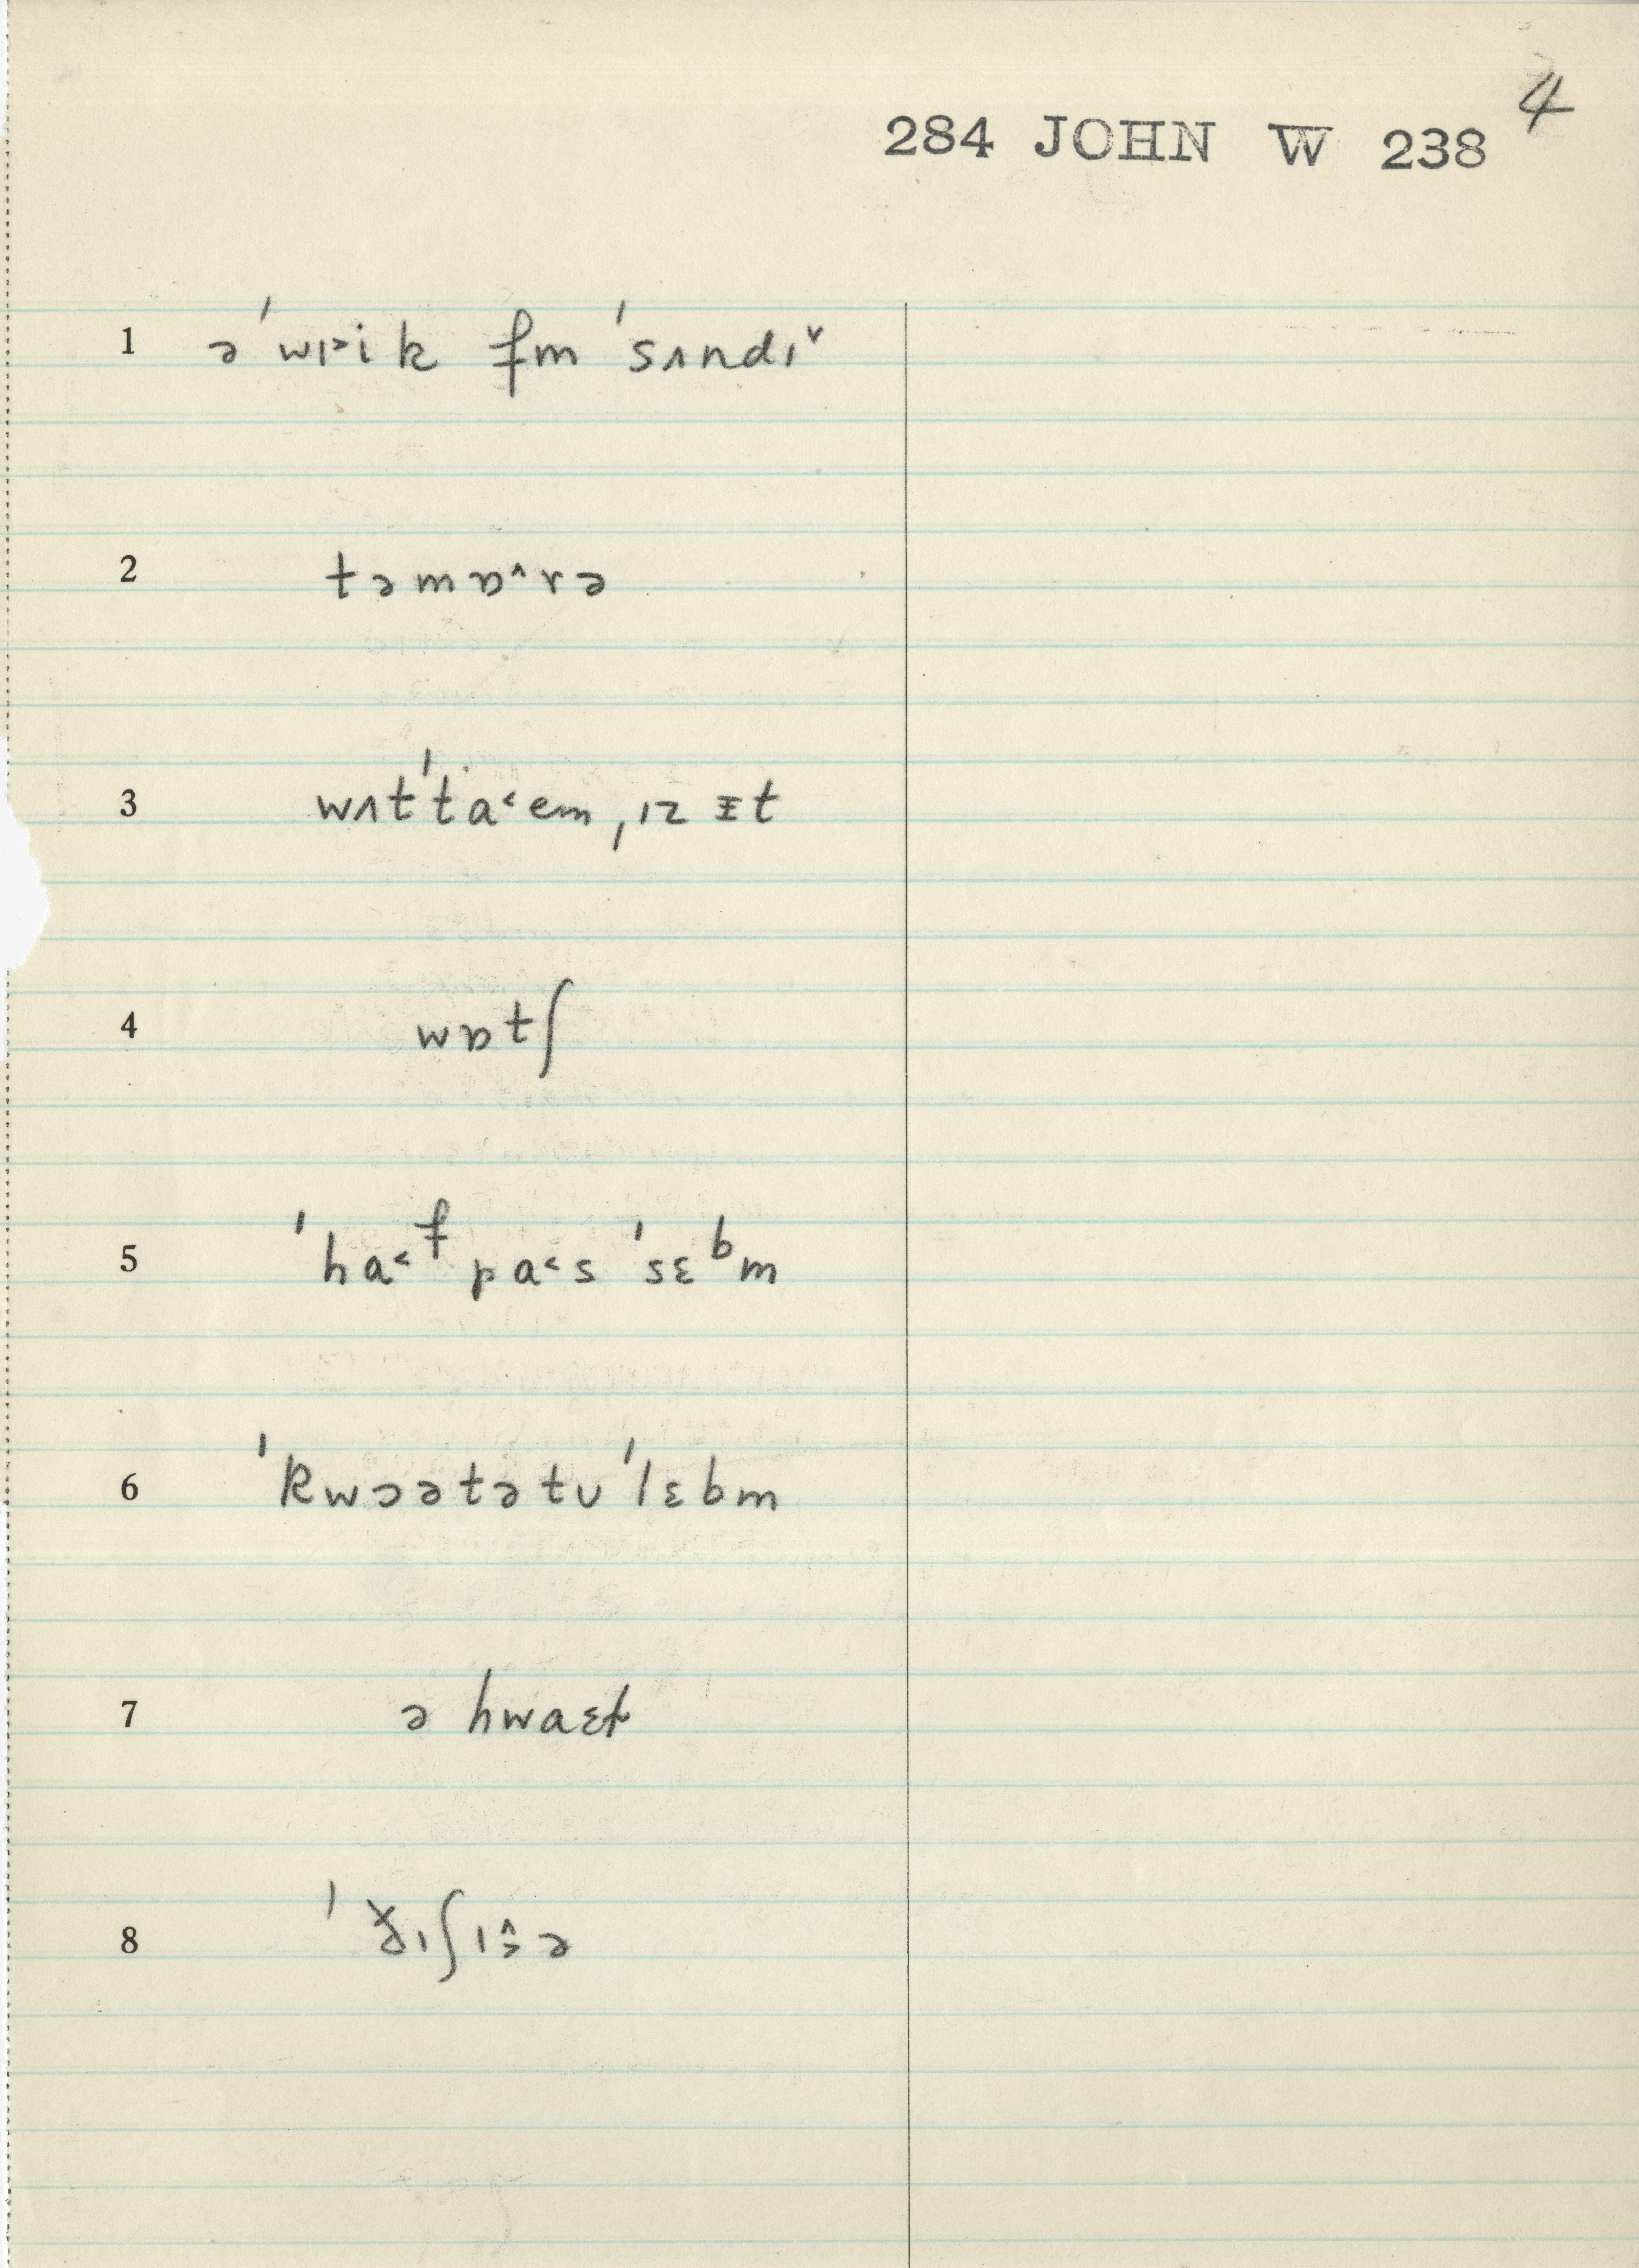 4
284 JOHN W 238
1 ə ˈwɪ˃ik fm ˈsʌndɪ˅
2 təmɒ˄rə
3 wʌtˈta˂em ˌɪz ᵻt
4 wɒtʃ
5 ˈha˂ᶠ pa˂s ˈsɛᵇm
6 ˈkwɔətətʊ ˈlɛbm
7 ə hwaɛɫ
8 ɪʃɪ˄˃ə